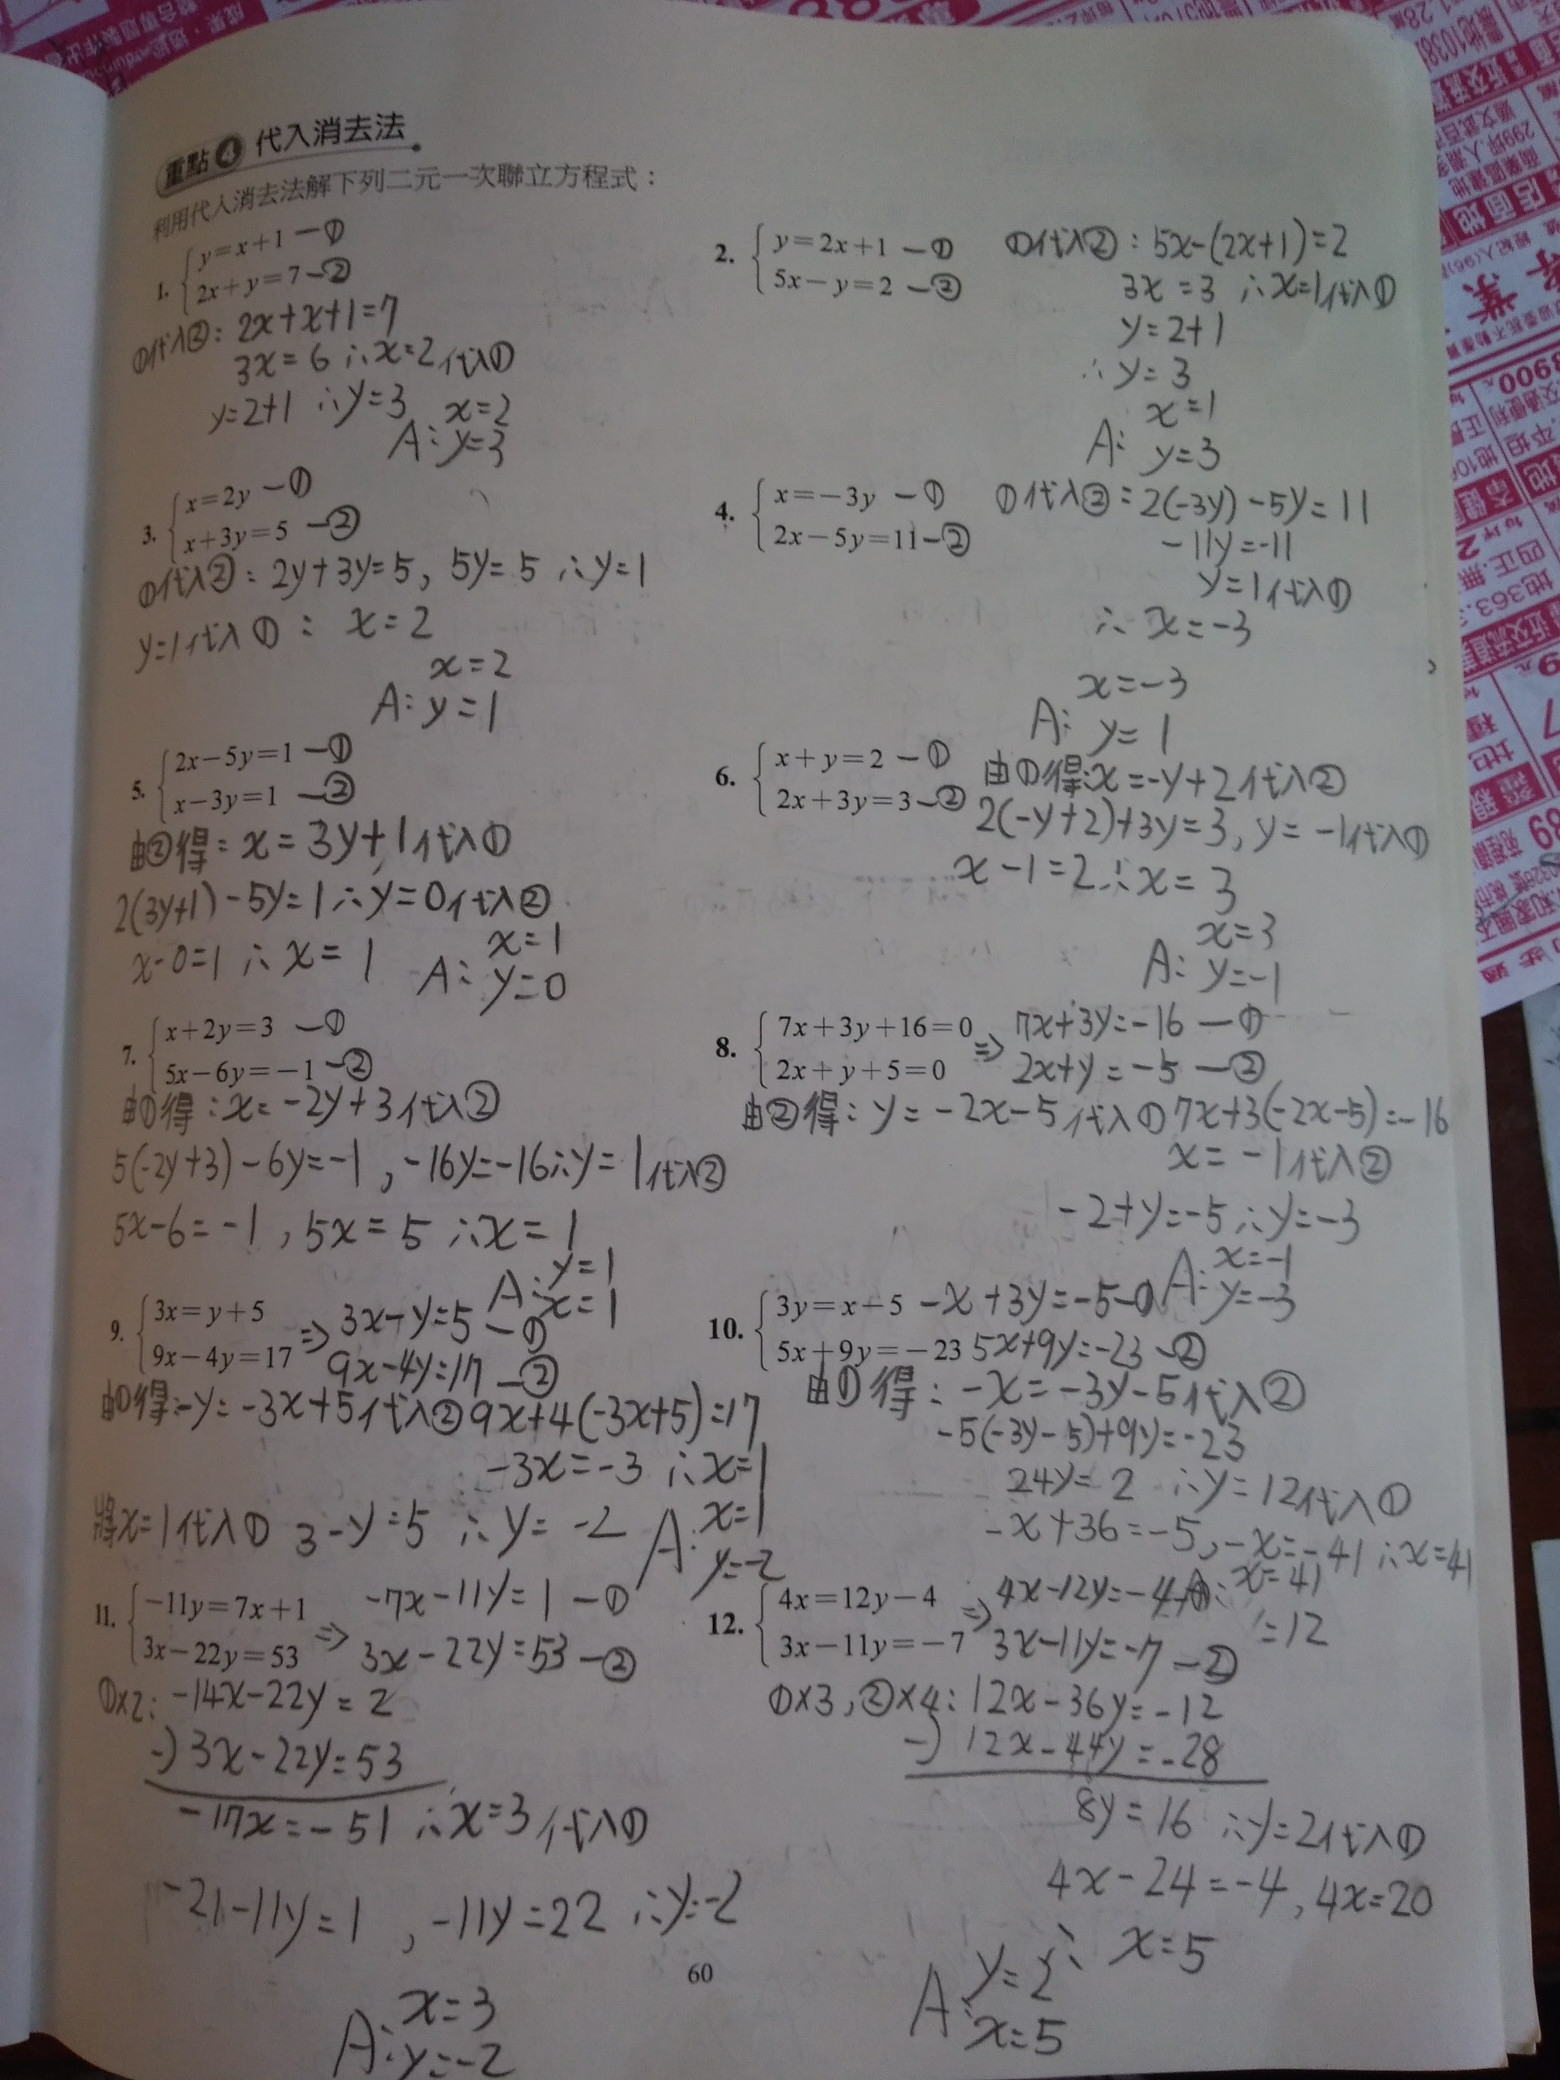 重點4 代入消去法
利用代入消去法解下列二元一次聯立方程式：
1. y=x+1 —①
2x+y=7 —②
①代入②：2x+x+1=7
3x=6 ∴x=2代入①
y=2+1 ∴y=3
A: x=2
y=3
2. y=2x+1 —①
5x−y=2 —②
①代入②：5x-(2x+1)=2
3x=3 ∴x=1代入①
y=2+1
∴y=3
A: x=1
y=3
3. x=2y —①
x+3y=5 —②
①代入②：2y+3y=5, 5y=5 ∴y=1
y=1代入①：x=2
A: x=2
y=1
4. x=−3y —①
2x−5y=11 —②
①代入②：2(-3y)-5y=11
-11y=-11
y=1代入①
∴x=-3
A: x=-3
y=1
5. 2x−5y=1 —①
x−3y=1 —②
由②得：x=3y+1代入①
2(3y+1)-5y=1 ∴y=0代入②
x-0=1 ∴x=1
A: x=1
y=0
6. x+y=2 —①
2x+3y=3 —②
由①得：x=-y+2代入②
2(-y+2)+3y=3, y=-1代入①
x-1=2 ∴x=3
A: x=3
y=-1
7. x+2y=3 —①
5x−6y=−1 —②
由①得：x=-2y+3代入②
5(-2y+3)-6y=-1, -16y=-16 ∴y=1代入②
5x-6=-1, 5x=5 ∴x=1
A: y=1
x=1
8. 7x+3y+16=0 ⇒ 7x+3y=-16 —①
2x+y+5=0 2x+y=-5 —②
由②得：y=-2x-5代入① 7x+3(-2x-5)=-16
x=-1代入②
-2+y=-5 ∴y=-3
A: x=-1
y=-3
9. 3x=y+5 ⇒ 3x-y=5 —①
9x−4y=17 9x-4y=17 —②
由①得：-y=-3x+5代入② 9x+4(-3x+5)=17
-3x=-3 ∴x=1
將x=1代入① 3-y=5 ∴y=-2
A: x=1
y=-2
10. 3y=x−5 -x+3y=-5 —①
5x+9y=−23 5x+9y=-23 —②
由①得：-x=-3y-5代入②
-5(-3y-5)+9y=-23
24y=2 ∴y=12代入①
-x+36=-5, -x=-41 ∴x=41
A: x=41
=12
11. −11y=7x+1 ⇒ -7x-11y=1 —①
3x−22y=53 3x-22y=53 —②
①×2: -14x-22y=2
-) 3x-22y=53
-17x=-51 ∴x=3代入①
-21-11y=1, -11y=22 ∴y=-2
A: x=3
y=-2
12. 4x=12y−4 ⇒ 4x-12y=-4 —①
3x−11y=−7 3x-11y=-7 —②
①×3, ②×4: 12x-36y=-12
-) 12x-44y=-28
8y=16 ∴y=2代入①
4x-24=-4, 4x=20
∴x=5
A: y=2
x=5
60